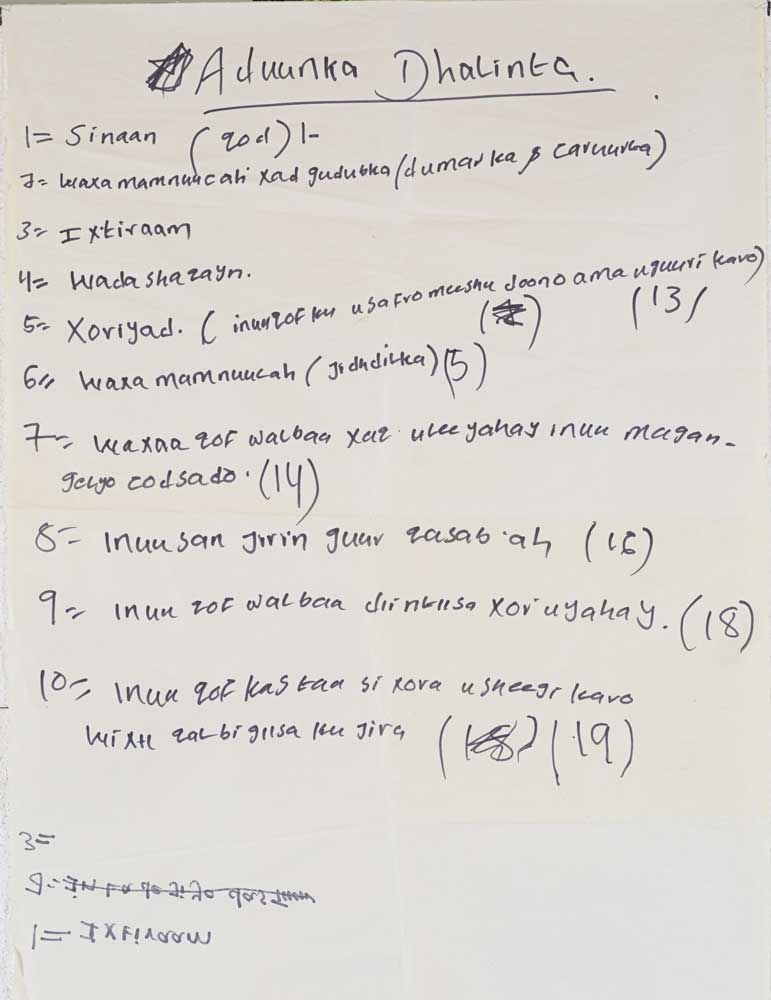 Aduunka Dhalinta.
1= Sinaan (qod) 1-
2= waxa mamnuucah xad gudubka (dumarka & caruurta)
3= Ixtiraam
4= Wadashaqayn.
5= Xoriyad. (inuu qof ku usafro meeshu doono ama uguuri karo) (13)
6= waxa mamnuucah (jidhdilka) (5)
7= waxaa qof walbaa xaq uleeyahay inuu magan-
gelyo codsado. (14)
8= inuusan jirin guur qasab ah (16)
9= inuu qof walbaa diintiisa xor uyahay. (18)
10= inuu qof kastaa si xora u sheegi karo
wixii qalbigiisa ku jira (19)
3=
1= Ixtiraam